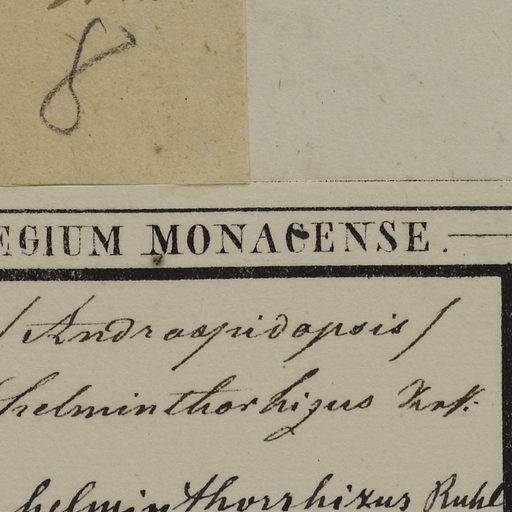 8
EGIUM MONACENSE.
/ Andraspidopsis /
helminthorhizus
helminthorrhizus Ruhl